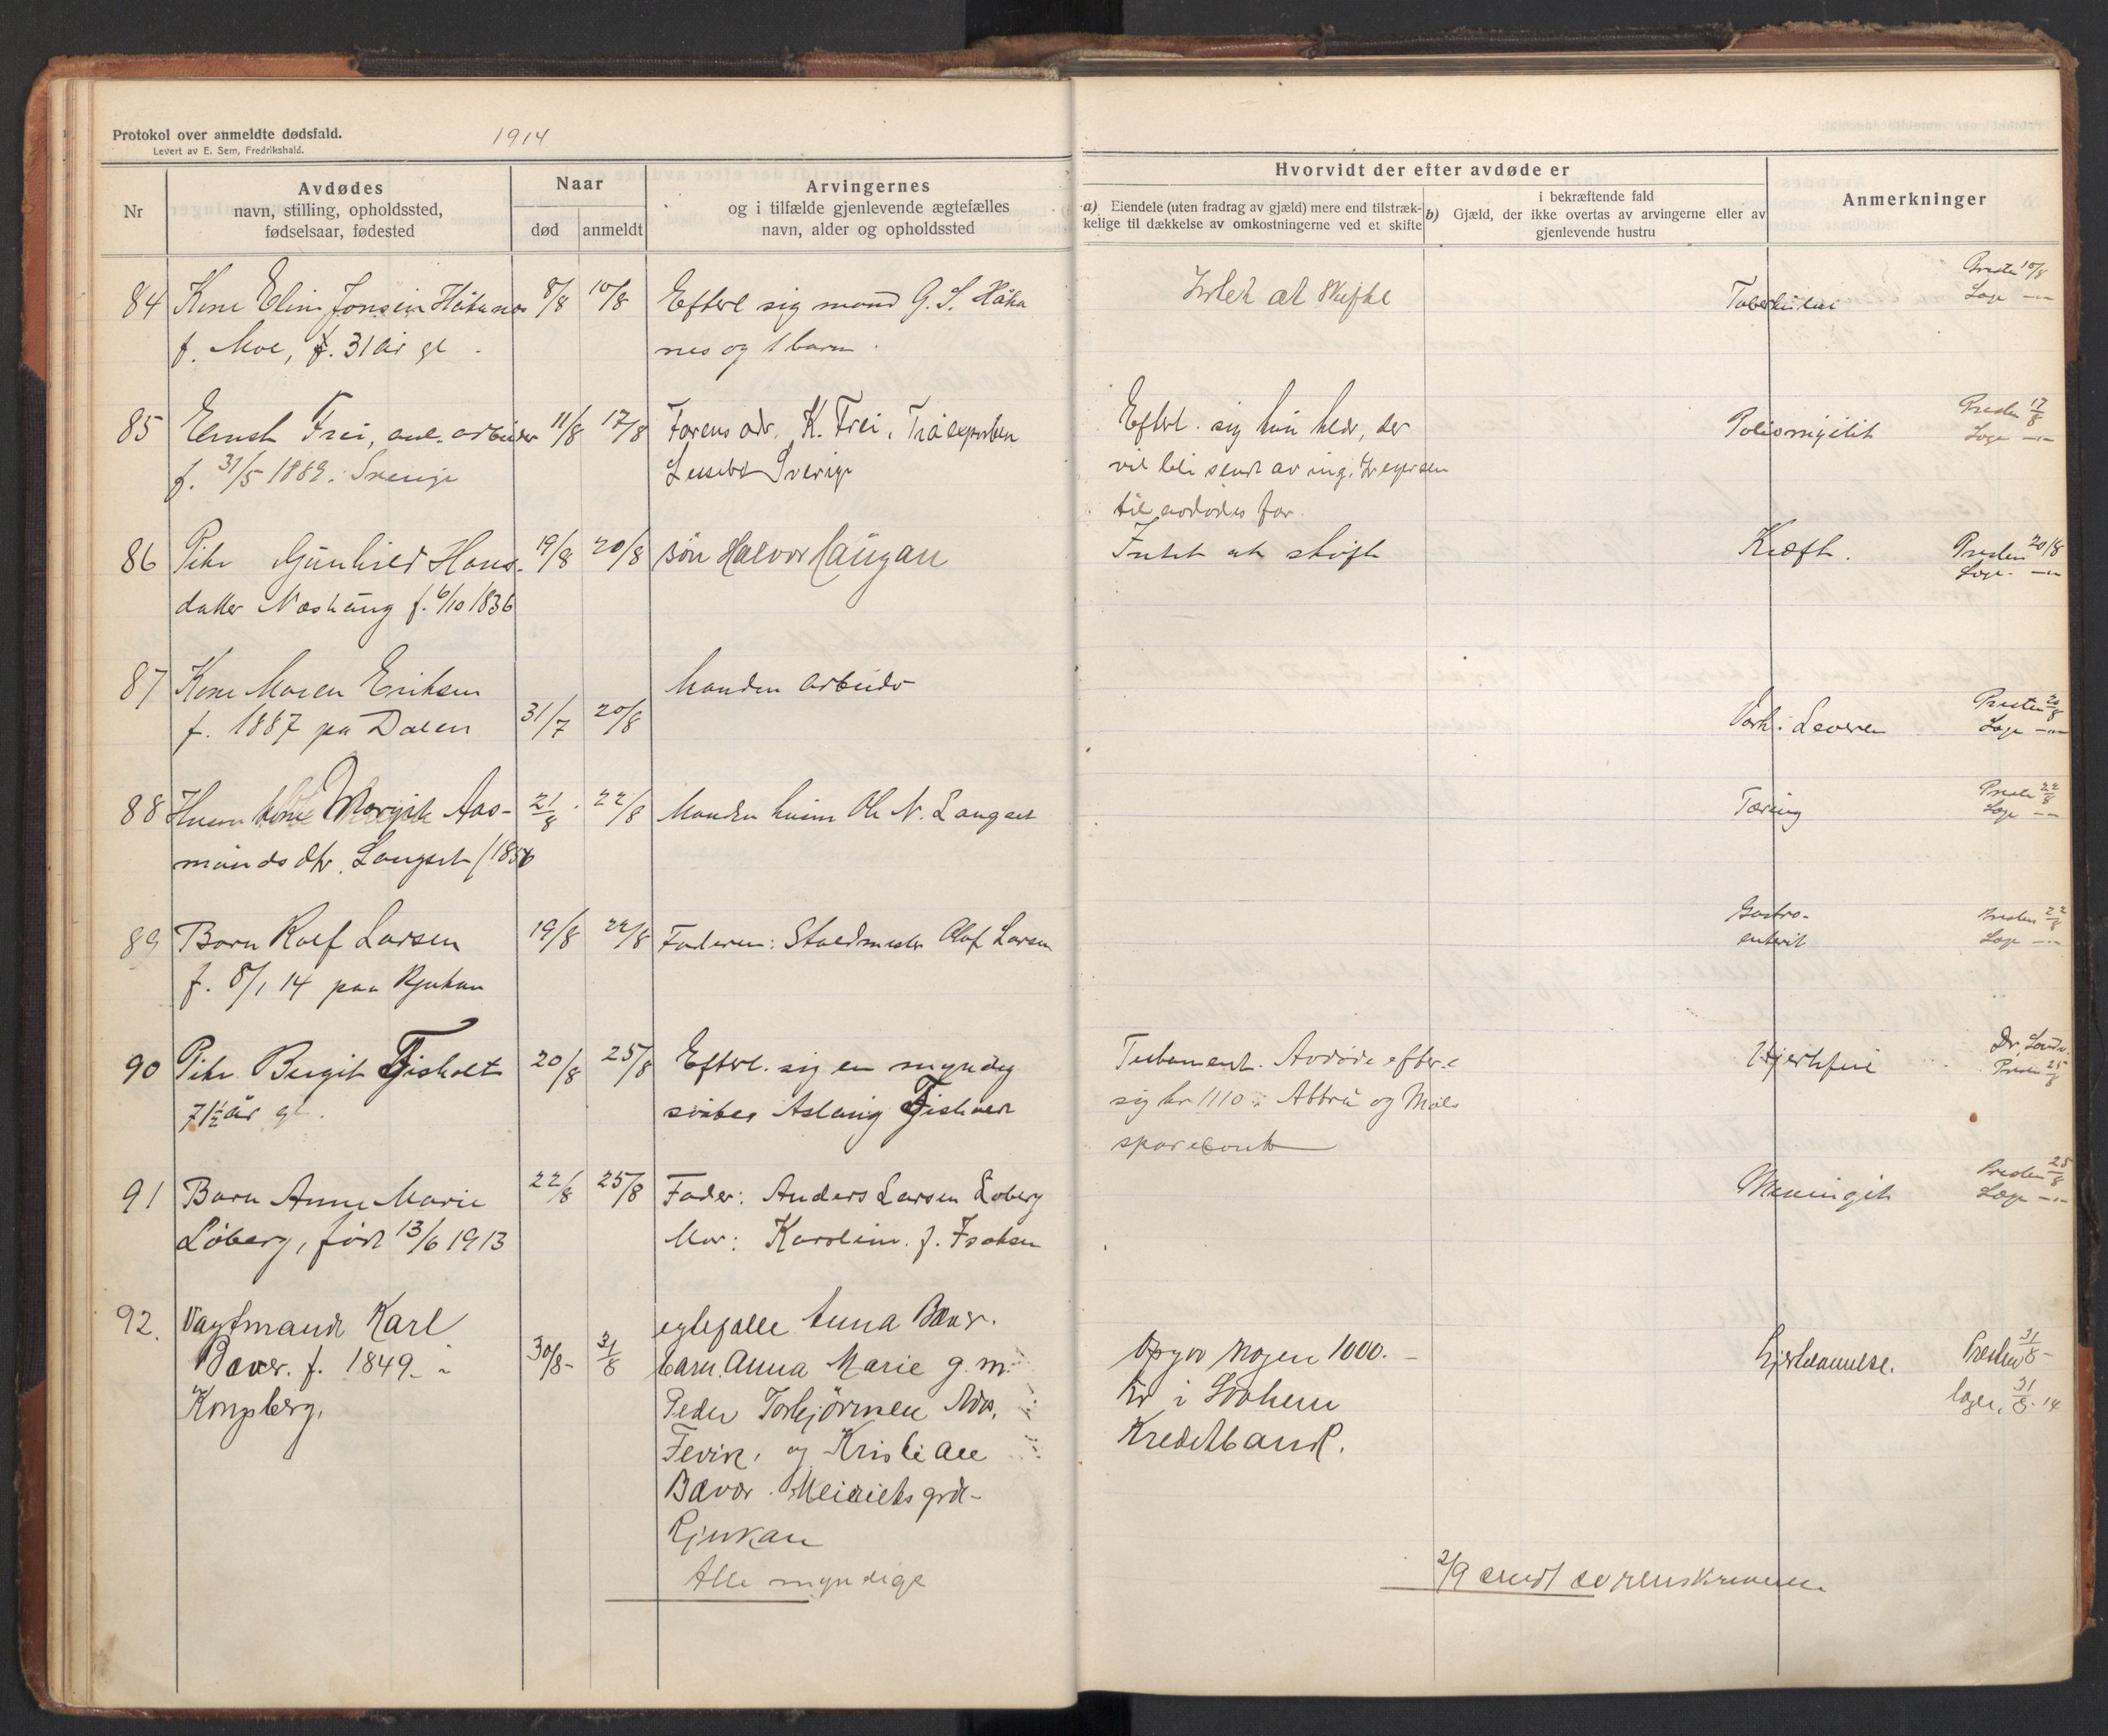 Protokol over anmeldte dødsfald.
Levert av E. Sem, Fredrikshald.
1914
Nr
Avdødes
navn, stilling, opholdssted,
fødselsaar, fødested
Naar
død
anmeldt
Arvingernes
og i tilfælde gjenlevende ægtefælles
navn, alder og opholdssted
Hvorvidt der efter avdøde er
a) Eiendele (uten fradrag av gjæld) mere end tilstræk-
kelige til dækkelse av omkostningerne ved et skifte
i bekræftende fald
b) Gjæld, der ikke overtas av arvingerne eller av
gjenlevende hustru
Anmerkninger
84 Kone Elin Jonsen Håkanes 8/8 10/8 Efterl sig mand G. S. Håka
f. Moe, f. 31 år gl.
nes og 1 barn.
Intet at skifte
Presten 10/8
Læge -"-
85 Ernst Frei, anl. arbeider 11/8 17/8
f. 31/5 1889. Sverige
Farens adr. K. Frei,
Sverige
Efterl. sig kun klær, der
vil bli sendt av ing.
til avdødes far.
Poliomyelit
Presten 17/8
Læge -"-
86 Pike Gunhild Hans- 19/8 20/8 Søn Halvor Haugan
datter Neshaug f. 6/10 1836
Intet at skifte
Kræft.
Presten 20/8
Læge -"-
87 Kone Maren Eriksen
f. 1887 på Dalen 31/7 20/8
Manden arbeider
Leveren
Presten 20/8
Læge -"-
88 Husm kone Margit Aas- 21/8 22/8 Manden husm Ole N. Langset
munds dtr. Langset f 1856
Tæring
Presten 22/8
Læge -"-
89 Barn Rolf Larsen 19/8 22/8 Faderen: Staldmester Olaf Larsen
f. 8/1 14 paa Rjukan
Gastro-
enterit
Presten 22/8
Læge -"-
90 Pike Birgit 20/8 25/8 Efterl. sig en myndig
71½ år gl.
søster Aslaug
Testament. Avdøde efterl
sig kr 1110 i Attrå og Mæls
sparebank
Hjertefeil
Dr.
Presten 25/8
91 Barn Anne Marie 22/8 25/8 Fader: Anders Larsen Løberg
Løberg, født 13/6 1913
Mor: Karoline f. Isaksen
Meningit
Presten 25/8
Læge -"-
92. Vagtmand Karl
Bæver. f. 1849 i 30/8 31/8
Kongsberg.
egtefælle Anna Bæver.
barn. Anna Marie g. m.
Peder Torbjørnsen Adr.
Fevik, og Kristiane
Bæver. Meieriets grd-
Rjukan
Alle myndige
Opgav nogen 1000.-
Kr i
Kreditbank.
Hjertelammelse.
Presten 31/8
læge, 31/8 14
2/9 sendt avrenskrivning